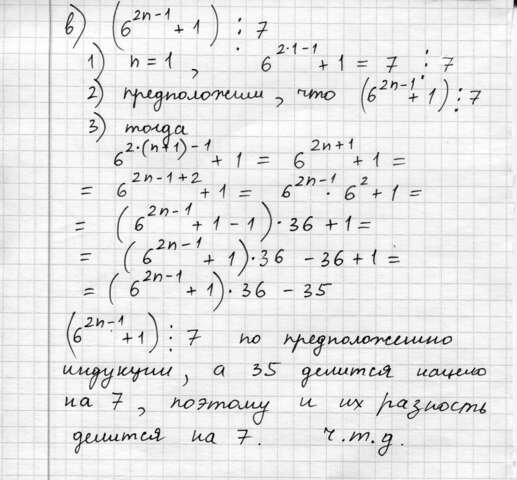 в) (6^{2n-1} + 1) ⋮ 7
1) n = 1, 6^{2·1-1} + 1 = 7 ⋮ 7
2) предположим, что (6^{2n-1} + 1) ⋮ 7
3) тогда
6^{2·(n+1)-1} + 1 = 6^{2n+1} + 1 =
= 6^{2n-1+2} + 1 = 6^{2n-1} · 6^2 + 1 =
= (6^{2n-1} + 1 - 1) · 36 + 1 =
= (6^{2n-1} + 1) · 36 - 36 + 1 =
= (6^{2n-1} + 1) · 36 - 35
(6^{2n-1} + 1) ⋮ 7 по предположению
индукции, а 35 делится нацело
на 7, поэтому и их разность
делится на 7. ч.т.д.